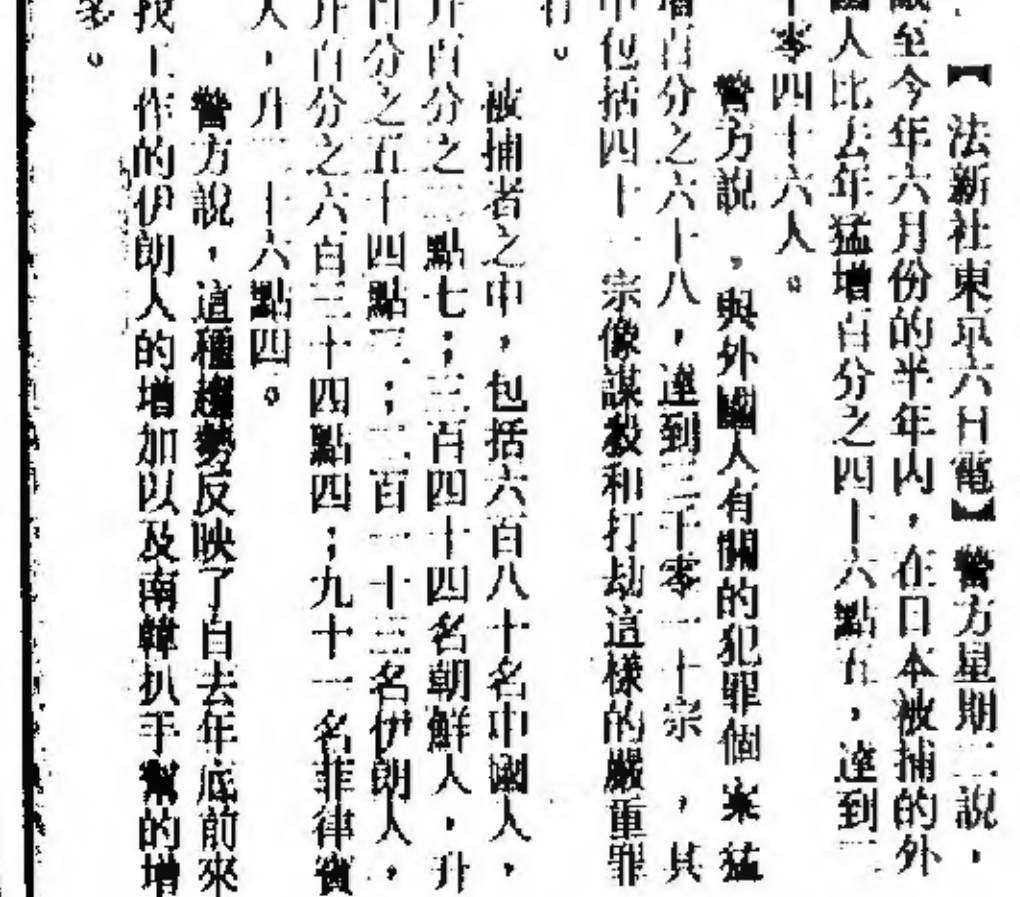 【法新社東京六日電】警方星期二說，
截至今年六月份的半年內，在日本被捕的外
國人比去年猛增百分之四十六點五，達到二
千零四十六人。
警方說，與外國人有關的犯罪個案猛
增百分之六十八，達到三千零一十宗，其
中包括四十一宗像謀殺和打劫這樣的嚴重罪
行。
被捕者之中，包括六百八十名中國人，
升百分之二點七；三百四十四名朝鮮人，升
百分之五十四點三；二百一十三名伊朗人，
升百分之六百三十四點四；九十一名菲律賓
人，升二十六點四。
警方說，這種趨勢反映了自去年底前來
找工作的伊朗人的增加以及南韓扒手幫的增
多。